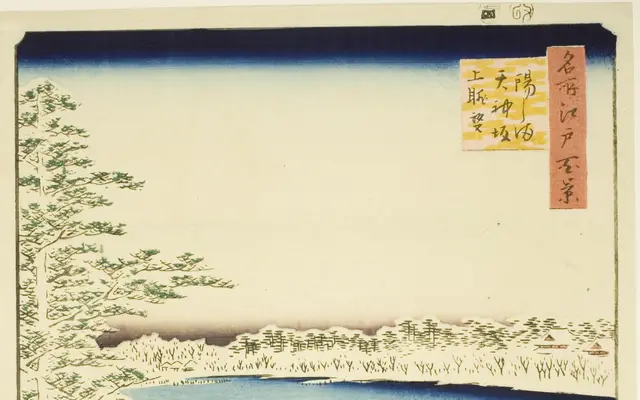 名所江戸百景
湯しま
天神坂
上眺望